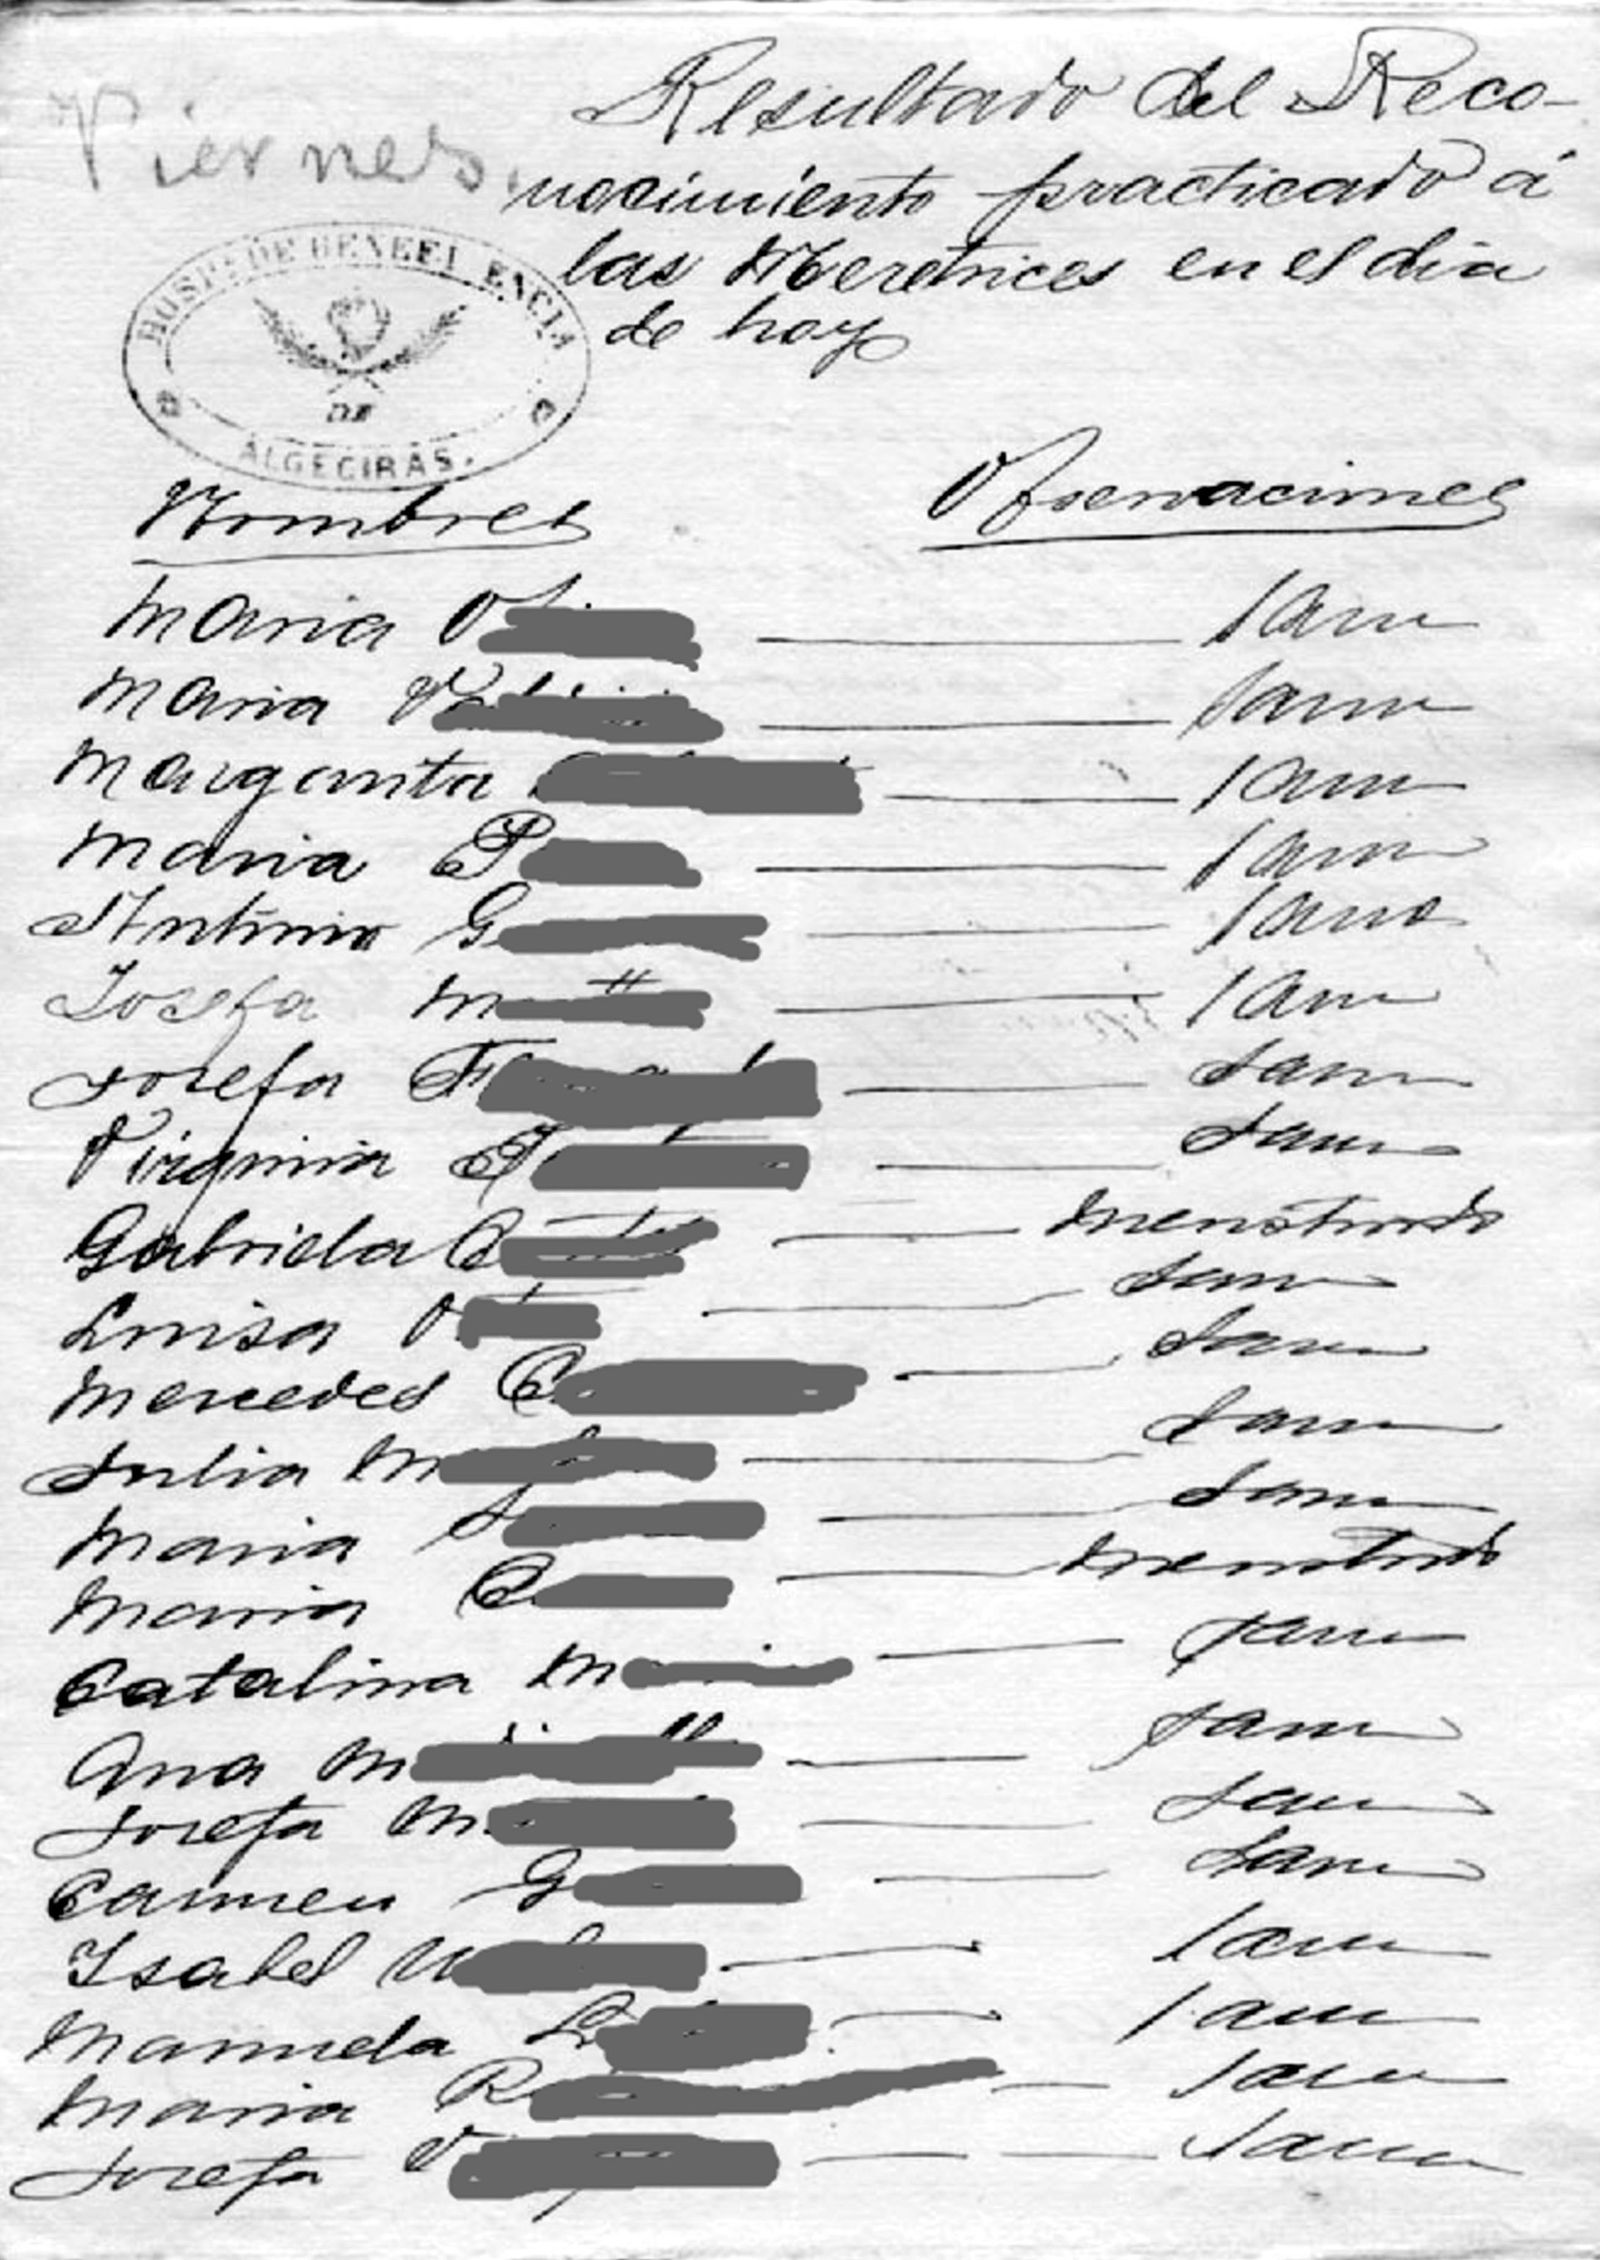 Viernes.
Resultado del Reco-
nocimiento practicado á
las Meretrices en el dia
de hoy
HOSP. DE BENEFICENCIA
DE
ALGECIRAS.
Nombres Observaciones
Maria O Sana
Maria V Sana
Margarita Sana
Maria P Sana
Antonia G Sana
Josefa M Sana
Josefa F Sana
Virginia Sana
Gabriela C menstruando
Luisa O Sana
Mercedes C Sana
Julia M Sana
Maria S Sana
Maria C menstruando
Catalina M Sana
Ana M Sana
Josefa M Sana
Carmen G Sana
Isabel Sana
Manuela L Sana
Maria R Sana
Josefa V Sana